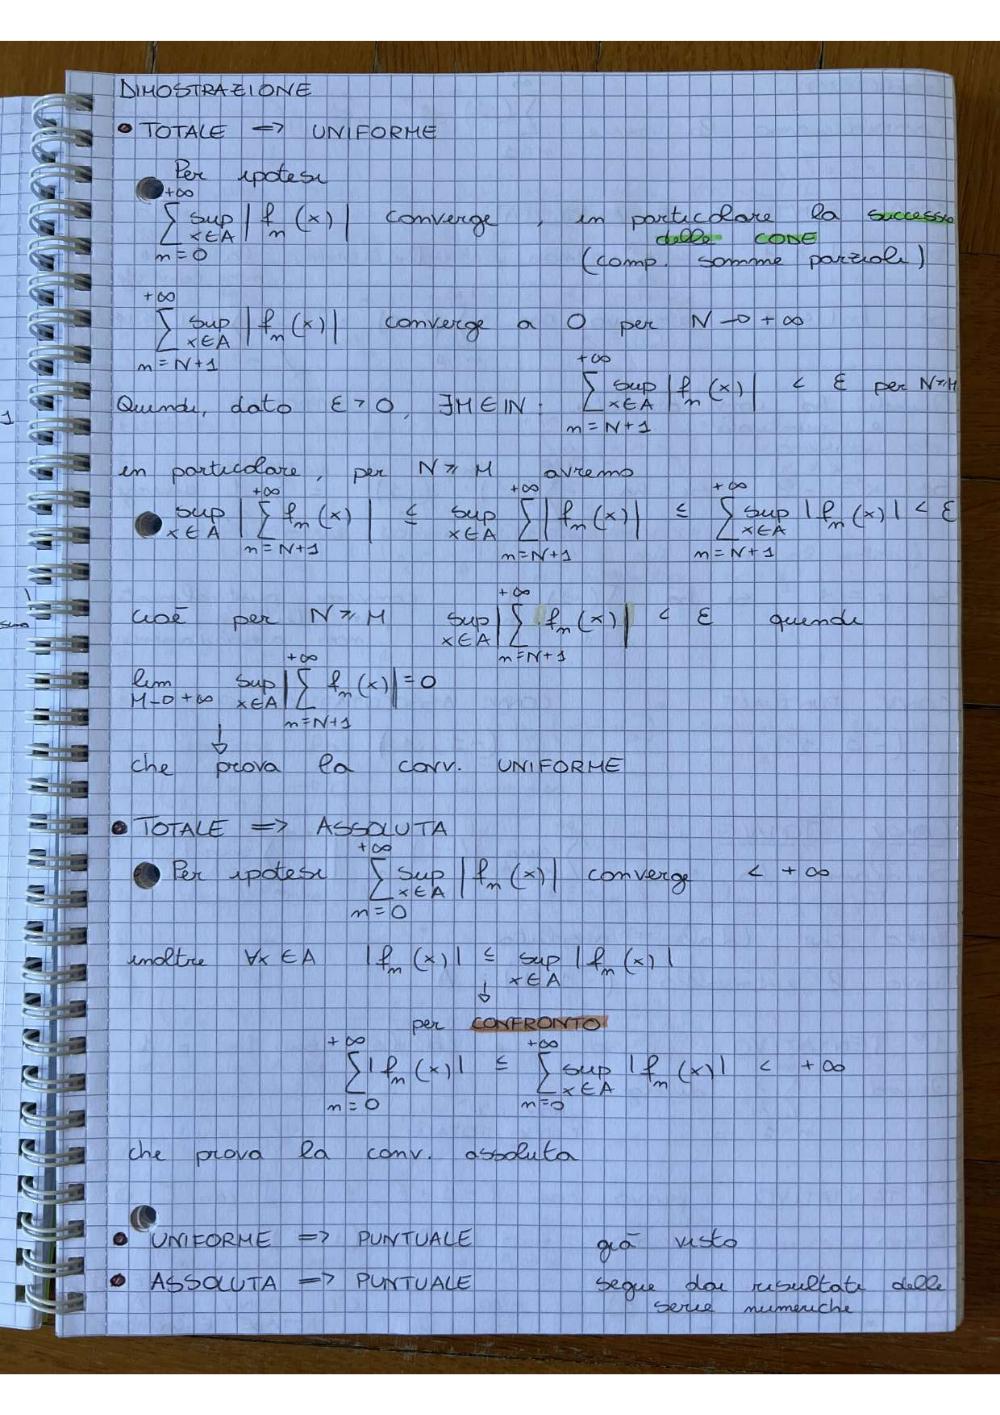 DIMOSTRAZIONE
• TOTALE => UNIFORME
Per ipotesi
+∞
∑ sup |fn(x)| converge, in particolare la successio
n=0 x∈A
delle CODE
(comp. somme parziali)
+∞
∑ sup |fn(x)| converge a 0 per N→+∞
n=N+1 x∈A
Quindi, dato ε>0, ∃M∈IN: ∑ sup |fn(x)| < ε per N≥M
+∞ n=N+1 x∈A
in particolare, per N≥M avremo
sup |∑ fn(x)| ≤ sup ∑ |fn(x)| ≤ ∑ sup |fn(x)| < ε
x∈A n=N+1 +∞ x∈A n=N+1 +∞ n=N+1 +∞ x∈A
cioè per N≥M sup |∑ fn(x)| < ε quindi
x∈A n=N+1 +∞
lim sup |∑ fn(x)| = 0
M→+∞ x∈A n=N+1 +∞
↓
che prova la conv. UNIFORME
• TOTALE => ASSOLUTA
Per ipotesi ∑ sup |fn(x)| converge < +∞
+∞ n=0 x∈A
inoltre ∀x∈A |fn(x)| ≤ sup |fn(x)|
x∈A
↓
per CONFRONTO
∑ |fn(x)| ≤ ∑ sup |fn(x)| < +∞
+∞ n=0 +∞ n=0 x∈A
che prova la conv. assoluta
• UNIFORME => PUNTUALE già visto
• ASSOLUTA => PUNTUALE segue dai risultati delle
serie numeriche